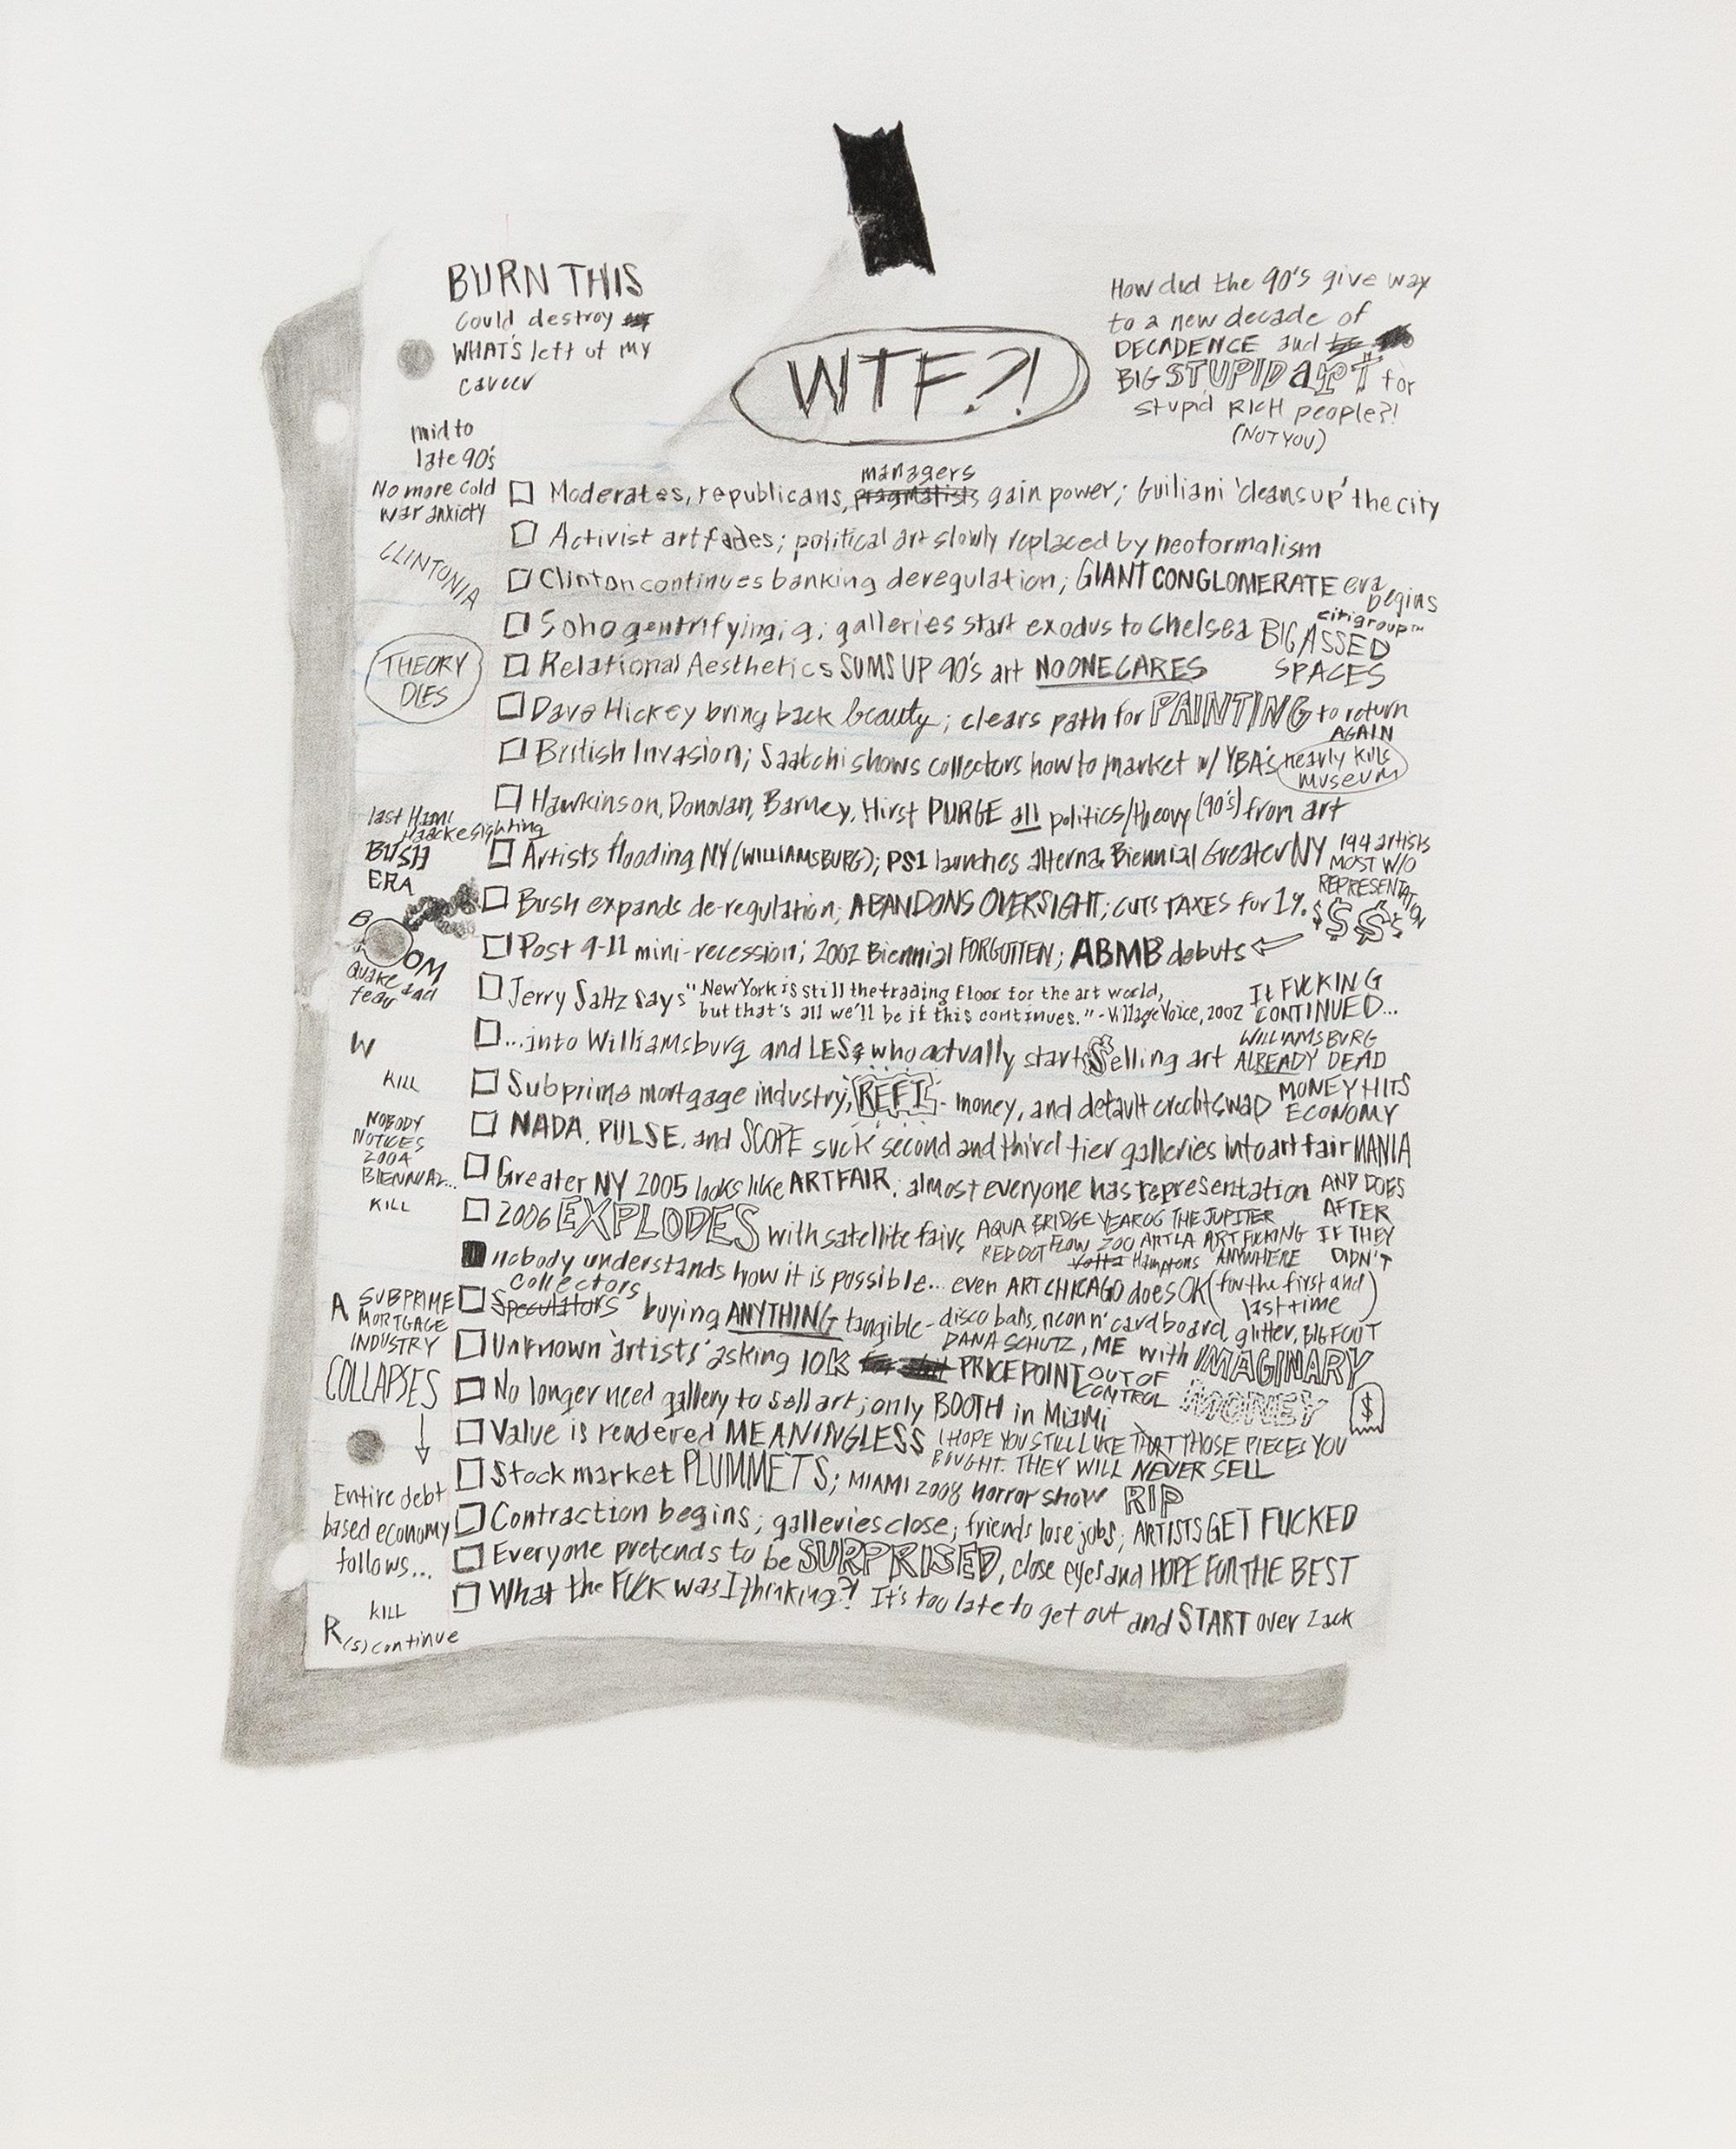 BURN THIS
could destroy
WHAT'S left of MY
career
WTF?!
How did the 90's give way
to a new decade of
DECADENCE and
BIG STUPID aRT for
stupid RICH people?!
(NOT YOU)
mid to
late 90's
No more cold
war anxiety
CLINTONIA
THEORY
DIES
last Hans
Haacke sighting
BUSH
ERA
BOOM
Quake and
fear
W
KILL
NOBODY
NOTICES
2004
BIENNIAL...
KILL
A SUBPRIME
MORTGAGE
INDUSTRY
COLLAPSES
Entire debt
based economy
follows...
KILL
R(s) continue
managers
Moderates, republicans, pragmatists gain power; Guiliani 'cleans up' the city
Activist art fades; political art slowly replaced by neoformalism
Clinton continues banking deregulation; GIANT CONGLOMERATE era
begins
citigroup™
Soho gentrifying; galleries start exodus to Chelsea BIG ASSED
SPACES
Relational Aesthetics SUMS UP 90's art NO ONE CARES
Dave Hickey bring back beauty; clears path for PAINTING to return
AGAIN
British Invasion; Saatchi shows collectors how to market w/ YBA's nearly kills
museum
Hawkinson, Donovan, Barney, Hirst PURGE all politics/theory (90's) from art
Artists flooding NY (WILLIAMSBURG); PS1 launches alterna Biennial Greater NY 144 artists
MOST W/O
REPRESENTATION
Bush expands de-regulation; ABANDONS OVERSIGHT; CUTS TAXES for 1%. $$$$
Post 9-11 mini-recession; 2002 Biennial FORGOTTEN; ABMB debuts
Jerry Saltz says "New York is still the trading floor for the art world,
but that's all we'll be if this continues." - Village Voice, 2002
It FUCKING
CONTINUED...
...into Williamsburg and LES; who actually start $elling art
WILLIAMSBURG
ALREADY DEAD
Subprime mortgage industry, REFI- money, and default credit swap MONEY HITS
ECONOMY
NADA, PULSE, and SCOPE suck second and third tier galleries into art fair MANIA
Greater NY 2005 looks like ART FAIR; almost everyone has representation AND DOES
AFTER
IF THEY
DIDN'T
2006 EXPLODES with satellite fairs AQUA BRIDGE YEAR06 THE JUPITER
RED DOT FLOW ZOO ART LA ART FUCKING
Volta Hamptons ANYWHERE
nobody understands how it is possible... even ART CHICAGO does OK (for the first and
last time)
collectors
Speculators buying ANYTHING tangible- disco balls, neon n' cardboard, glitter, BIGFOOT
DANA SCHUTZ, ME with IMAGINARY
MONEY $
Unknown 'artists' asking 10K PRICE POINT OUT OF
CONTROL
No longer need gallery to sell art; only BOOTH in MiaMi
Value is rendered MEANINGLESS I HOPE YOU STILL LIKE THAT THOSE PIECES YOU
BOUGHT. THEY WILL NEVER SELL
Stock market PLUMMETS; MIAMI 2008 horror show RIP
Contraction begins; galleries close; friends lose jobs; ARTISTS GET FUCKED
Everyone pretends to be SURPRISED, close eyes and HOPE FOR THE BEST
What the FUCK was I thinking?! It's too late to get out and START over Zack